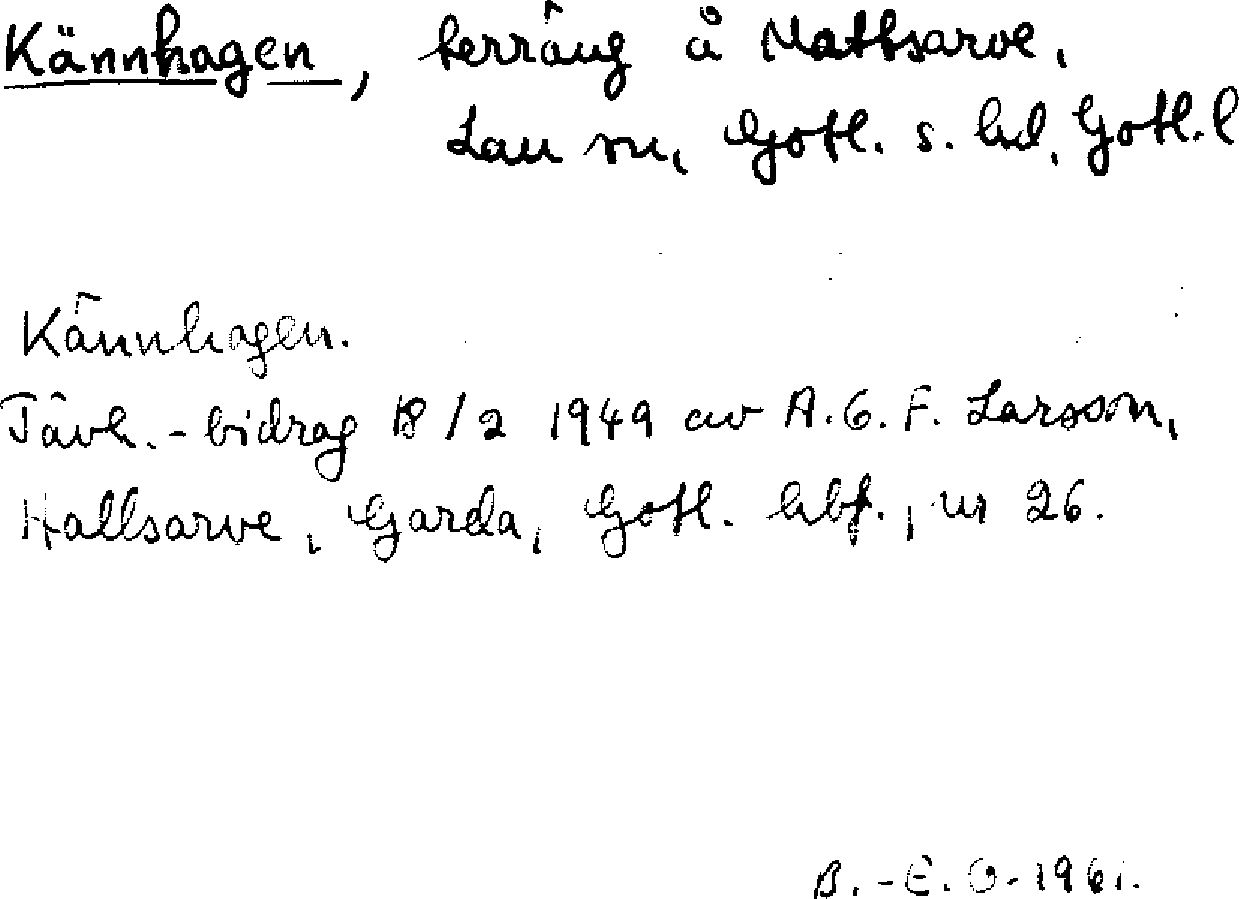 Kännhagen, terräng å Mattsarve,
Lau sn, Gotl. s. hd, Gotl. l
Kännhagen.
Tävl.-bidrag 18/2 1949 av A. G. F. Larsson,
Hallsarve, Garda, Gotl. hbf., nr 26.
B.-E. O. 1961.